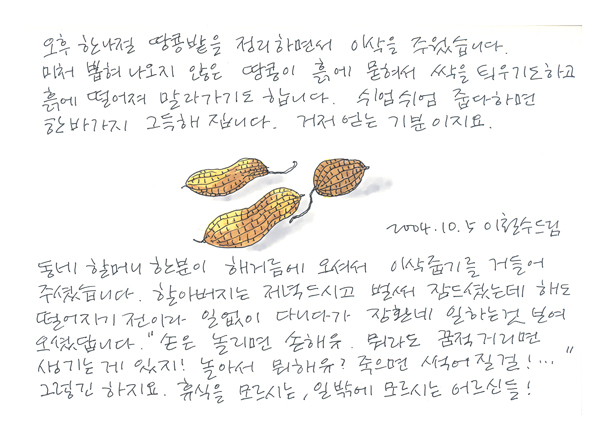 오후 한나절 땅콩밭을 정리하면서 이삭을 주웠습니다.
미처 뽑혀 나오지 않은 땅콩이 흙에 묻혀서 싹을 틔우기도하고
흙에 떨어져 말라가기도 합니다. 쉬엄쉬엄 줍다하면
한바가지 그득해 집니다. 거저얻는 기분이지요.
2004.10.5 이철수드림
동네 할머니 한분이 해거름에 오셔서 이삭줍기를 거들어
주셨습니다. 할아버지는 저녁드시고 벌써 잠드셨는데 해도
떨어지기 전이라 일없이 다니다가 장환네 일하는것 보여
오셨답니다. "손은 놀리면 손해유. 뭐라도 꿈적거리면
생기는게 있지! 놀아서 뭐해유? 죽으면 썩어질걸!..."
그렇긴 하지요. 휴식을 모르시는, 일밖에 모르시는 어르신들!